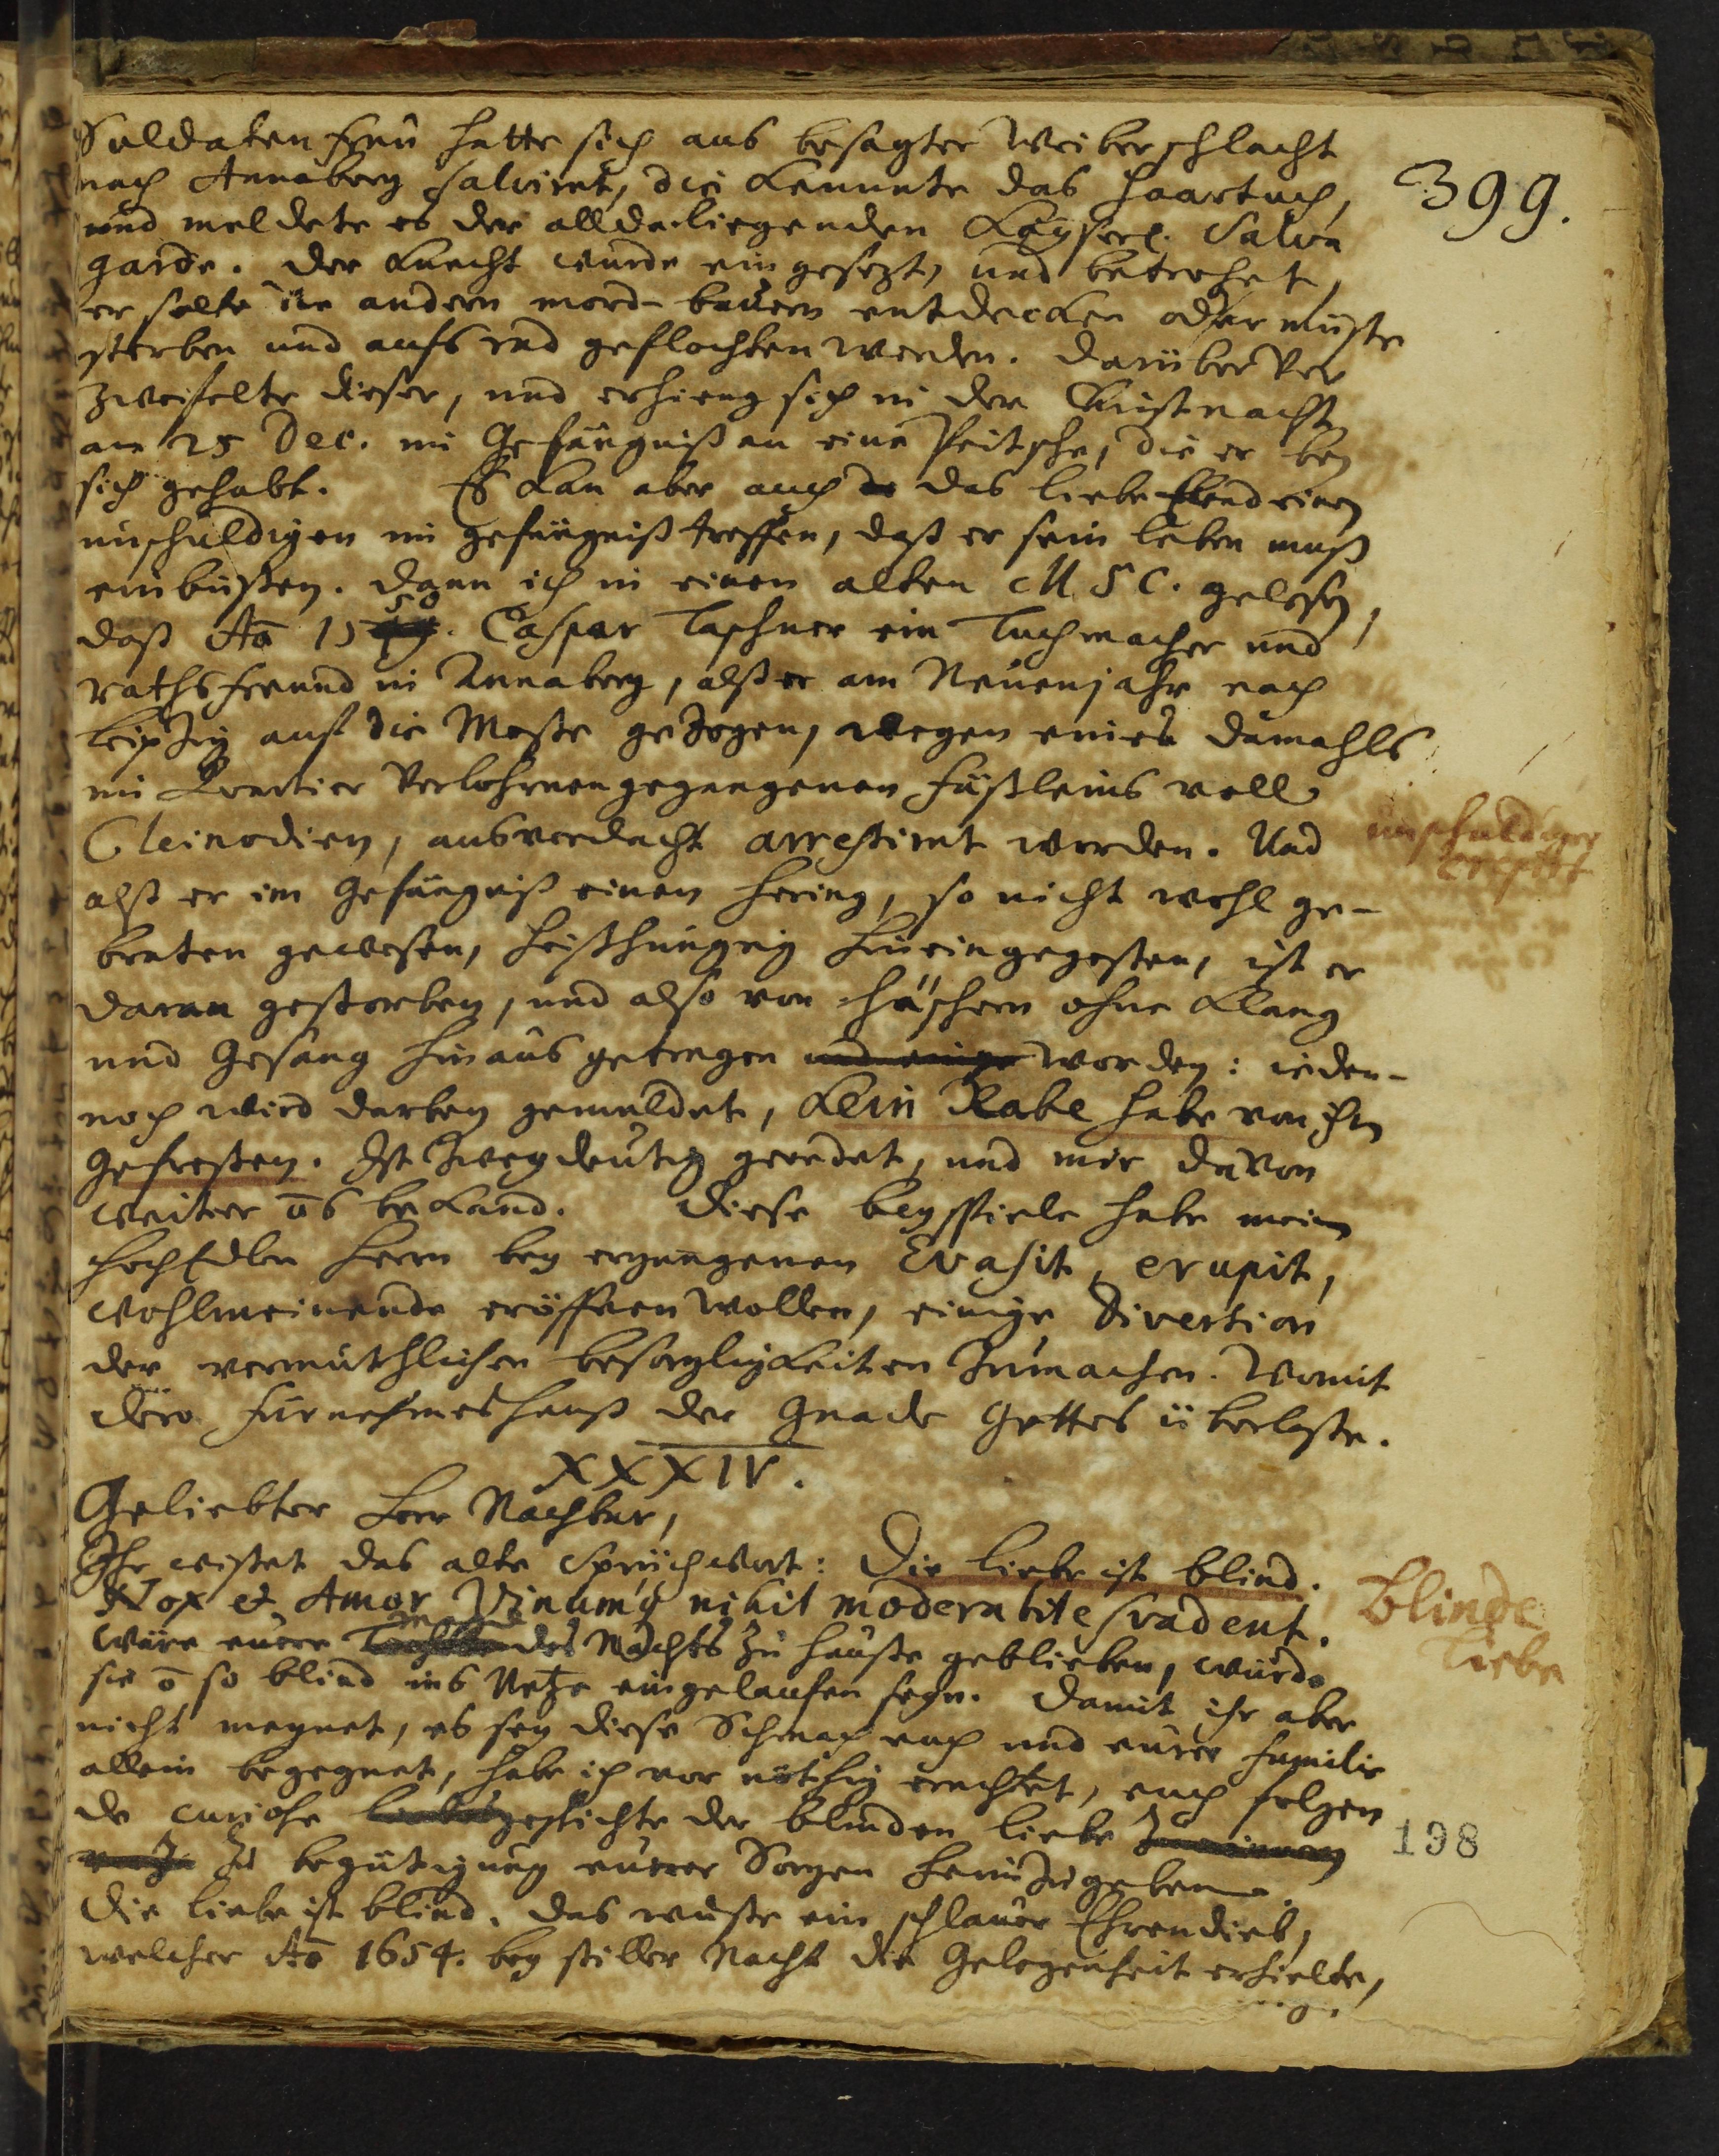 399.
Soldaten frau hatte sich aus besagter Weiberschlacht
nach Annaberg salviret, die kennte das haartuch,
und meldete es der alldaliegenden Kayserl. Salva
garde. Der Knecht wurde eingesezt, und betrohet,
er solte die andern mord-bauern entdecken oder müste
sterben und aufs rad geflochten werden. Darüber ver
zweifelte dieser, und erhieng sich in der Christnacht
am 25 Dec. im Gefängniß an eine Peitsche, die er bey
sich gehabt. Es kan aber auch das liebe Elend einen
unschuldigen im gefängniß treffen, daß er sein leben muß
einbüßen. Dann ich in einen alten MSC. gelesen,
daß Ao 1558. Caspar Taschner ein Tuchmacher und
rathsfreund in Annaberg, alß er am Neuenjahr nach
Leipzig auf die Messe gezogen, wegen eines damahls
im Quartier verlohrnengegangenen fäßleins voll
Cleinodien, aus verdacht arrestiret worden. Und
unschuldiger
alß er im Gefängniß einen hering, so nicht wohl ge-
braten gewesen, heißhungrig hineingegessen, ist er
daran gestorben, und also von häschern ohne Klang
und Gesang hinaus getragen und einge worden: ieden-
noch wird darbey gemeldet, kein Rabe habe von ihm
gefressen. Ist zweydeutig geredet, und mir davon
weiter nichts bekand. Diese beyspiele habe mein
HochEdlen Herrn bey ergangenen Evasit, erupit,
wohlmeinende eröffnen wollen, einige Divertion
der vermuthlichen besorgligkeiten zumachen. Womit
dero fürnehmes hauß der Gnade Gottes überlasse.
XXXIV.
Geliebter Herr Nachbar,
Ihr wisset das alte Sprüchwort: Die liebe ist blind.
Blinde
Liebe
Nox et Amor Vinumq nihil moderabile svadent.
Wäre eurer Magd des Nachts zu hauße geblieben, würde
sie nicht so blind ins Netze eingelaufen seyn. Damit ihr aber
nicht meynet, es sey diese Schmach euch und eurer familie
allein begegnet, habe ich vor nöthig erachtet, euch folgen
de curiose geschichte der blinden liebe
zu begütigung eurer Sorgen heimzugeben.
198
Die liebe ist blind. Das wuste ein schlauer Ehrendieb,
welcher Ao 1654. bey stiller Nacht die Gelegenheit erhielte,